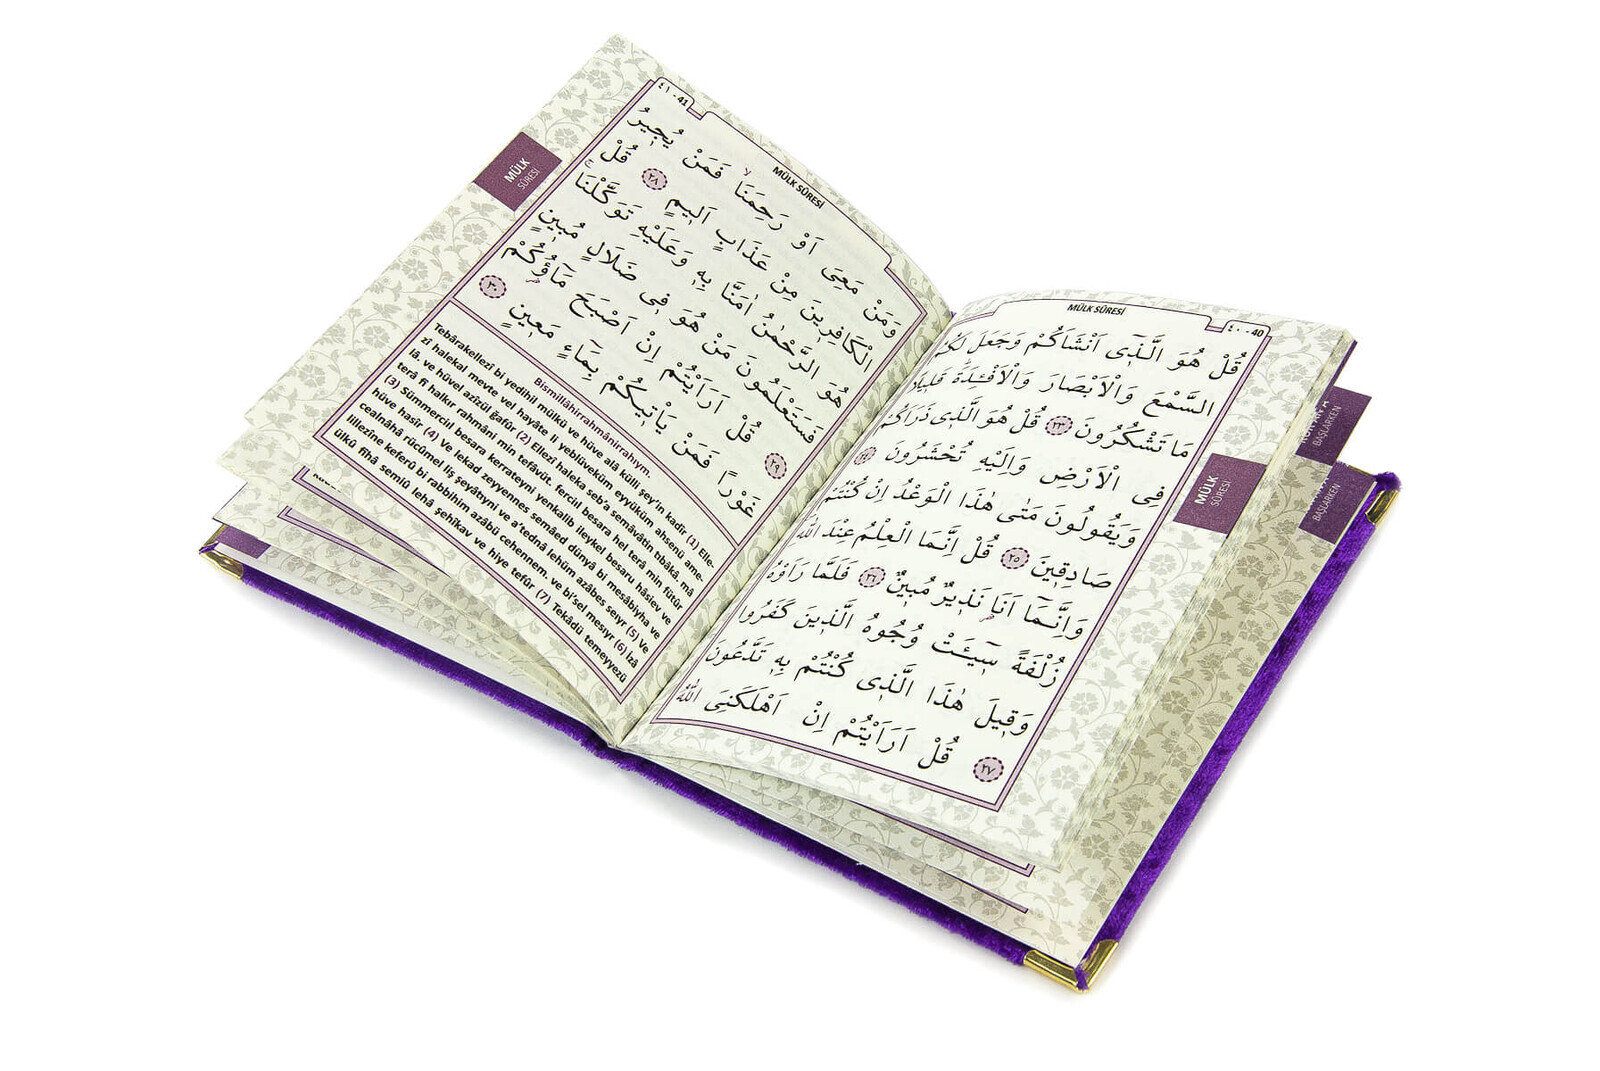 MÜLK SÛRESİ
٤٠ - 40
قُلْ هُوَ الَّذ۪ٓي اَنْشَاَكُمْ وَجَعَلَ لَكُمُ
السَّمْعَ وَالْاَبْصَارَ وَالْاَفْـِٔدَةَۜ قَل۪يلًا
مَا تَشْكُرُونَ ﴿٢٣﴾ قُلْ هُوَ الَّذ۪ي ذَرَاَكُمْ
فِي الْاَرْضِ وَاِلَيْهِ تُحْشَرُونَ ﴿٢٤﴾
وَيَقُولُونَ مَتٰى هٰذَا الْوَعْدُ اِنْ كُنْتُمْ
صَادِق۪ينَ ﴿٢٥﴾ قُلْ اِنَّمَا الْعِلْمُ عِنْدَ اللّٰهِ
وَاِنَّمَٓا اَنَا۬ نَذ۪يرٌ مُب۪ينٌ ﴿٢٦﴾ فَلَمَّا رَاَوْهُ
زُلْفَةً س۪ٓيـَٔتْ وُجُوهُ الَّذ۪ينَ كَفَرُوا
وَق۪يلَ هٰذَا الَّذ۪ي كُنْتُمْ بِه۪ تَدَّعُونَ
﴿٢٧﴾ قُلْ اَرَاَيْتُمْ اِنْ اَهْلَكَنِيَ اللّٰهُ
MÜLK
SÛRESİ
BAŞLARKEN
BAŞLARKEN
٤١ - 41
MÜLK SÛRESİ
وَمَنْ مَعِيَ اَوْ رَحِمَنَاۙ فَمَنْ يُج۪يرُ
الْكَافِر۪ينَ مِنْ عَذَابٍ اَل۪يمٍ ﴿٢٨﴾ قُلْ
هُوَ الرَّحْمٰنُ اٰمَنَّا بِه۪ وَعَلَيْهِ تَوَكَّلْنَاۚ
فَسَتَعْلَمُونَ مَنْ هُوَ ف۪ي ضَلَالٍ مُب۪ينٍ
﴿٢٩﴾ قُلْ اَرَاَيْتُمْ اِنْ اَصْبَحَ مَٓاؤُ۬كُمْ
غَوْرًا فَمَنْ يَأْت۪يكُمْ بِمَٓاءٍ مَع۪ينٍ ﴿٣٠﴾
Bismillâhirrahmânirrahıym.
Tebârakellezî bi yedihil mülkü ve hüve alâ külli şey'in kadîr (1) Elle-
zî halekal mevte vel hayâte li yeblüveküm eyyüküm ahsenü ame-
lâ. ve hüvel azîzül ğafûr (2) Ellezî haleka seb'a semâvâtin tıbâkâ, mâ
terâ fî halkır rahmâni min tefâvüt. fercıil besara hel terâ min fütûr
(3) Sümmerciıl besara kerrateyni yenkalib ileykel besaru hâsiev ve
hüve hasîr (4) Ve lekad zeyyennes semâed dünyâ bi mesâbîyha ve
cealnâhâ rücûmel liş şeyâtıyni ve a'tednâ lehüm azâbes seıyr (5) Ve
lillezîne keferû bi rabbihim azâbü cehennem. ve bi'sel mesıyr (6) İzâ
ülkû fîhâ semiû lehâ şehîkav ve hiye tefûr (7) Tekâdü temeyyezü
MÜLK
SÛRESİ